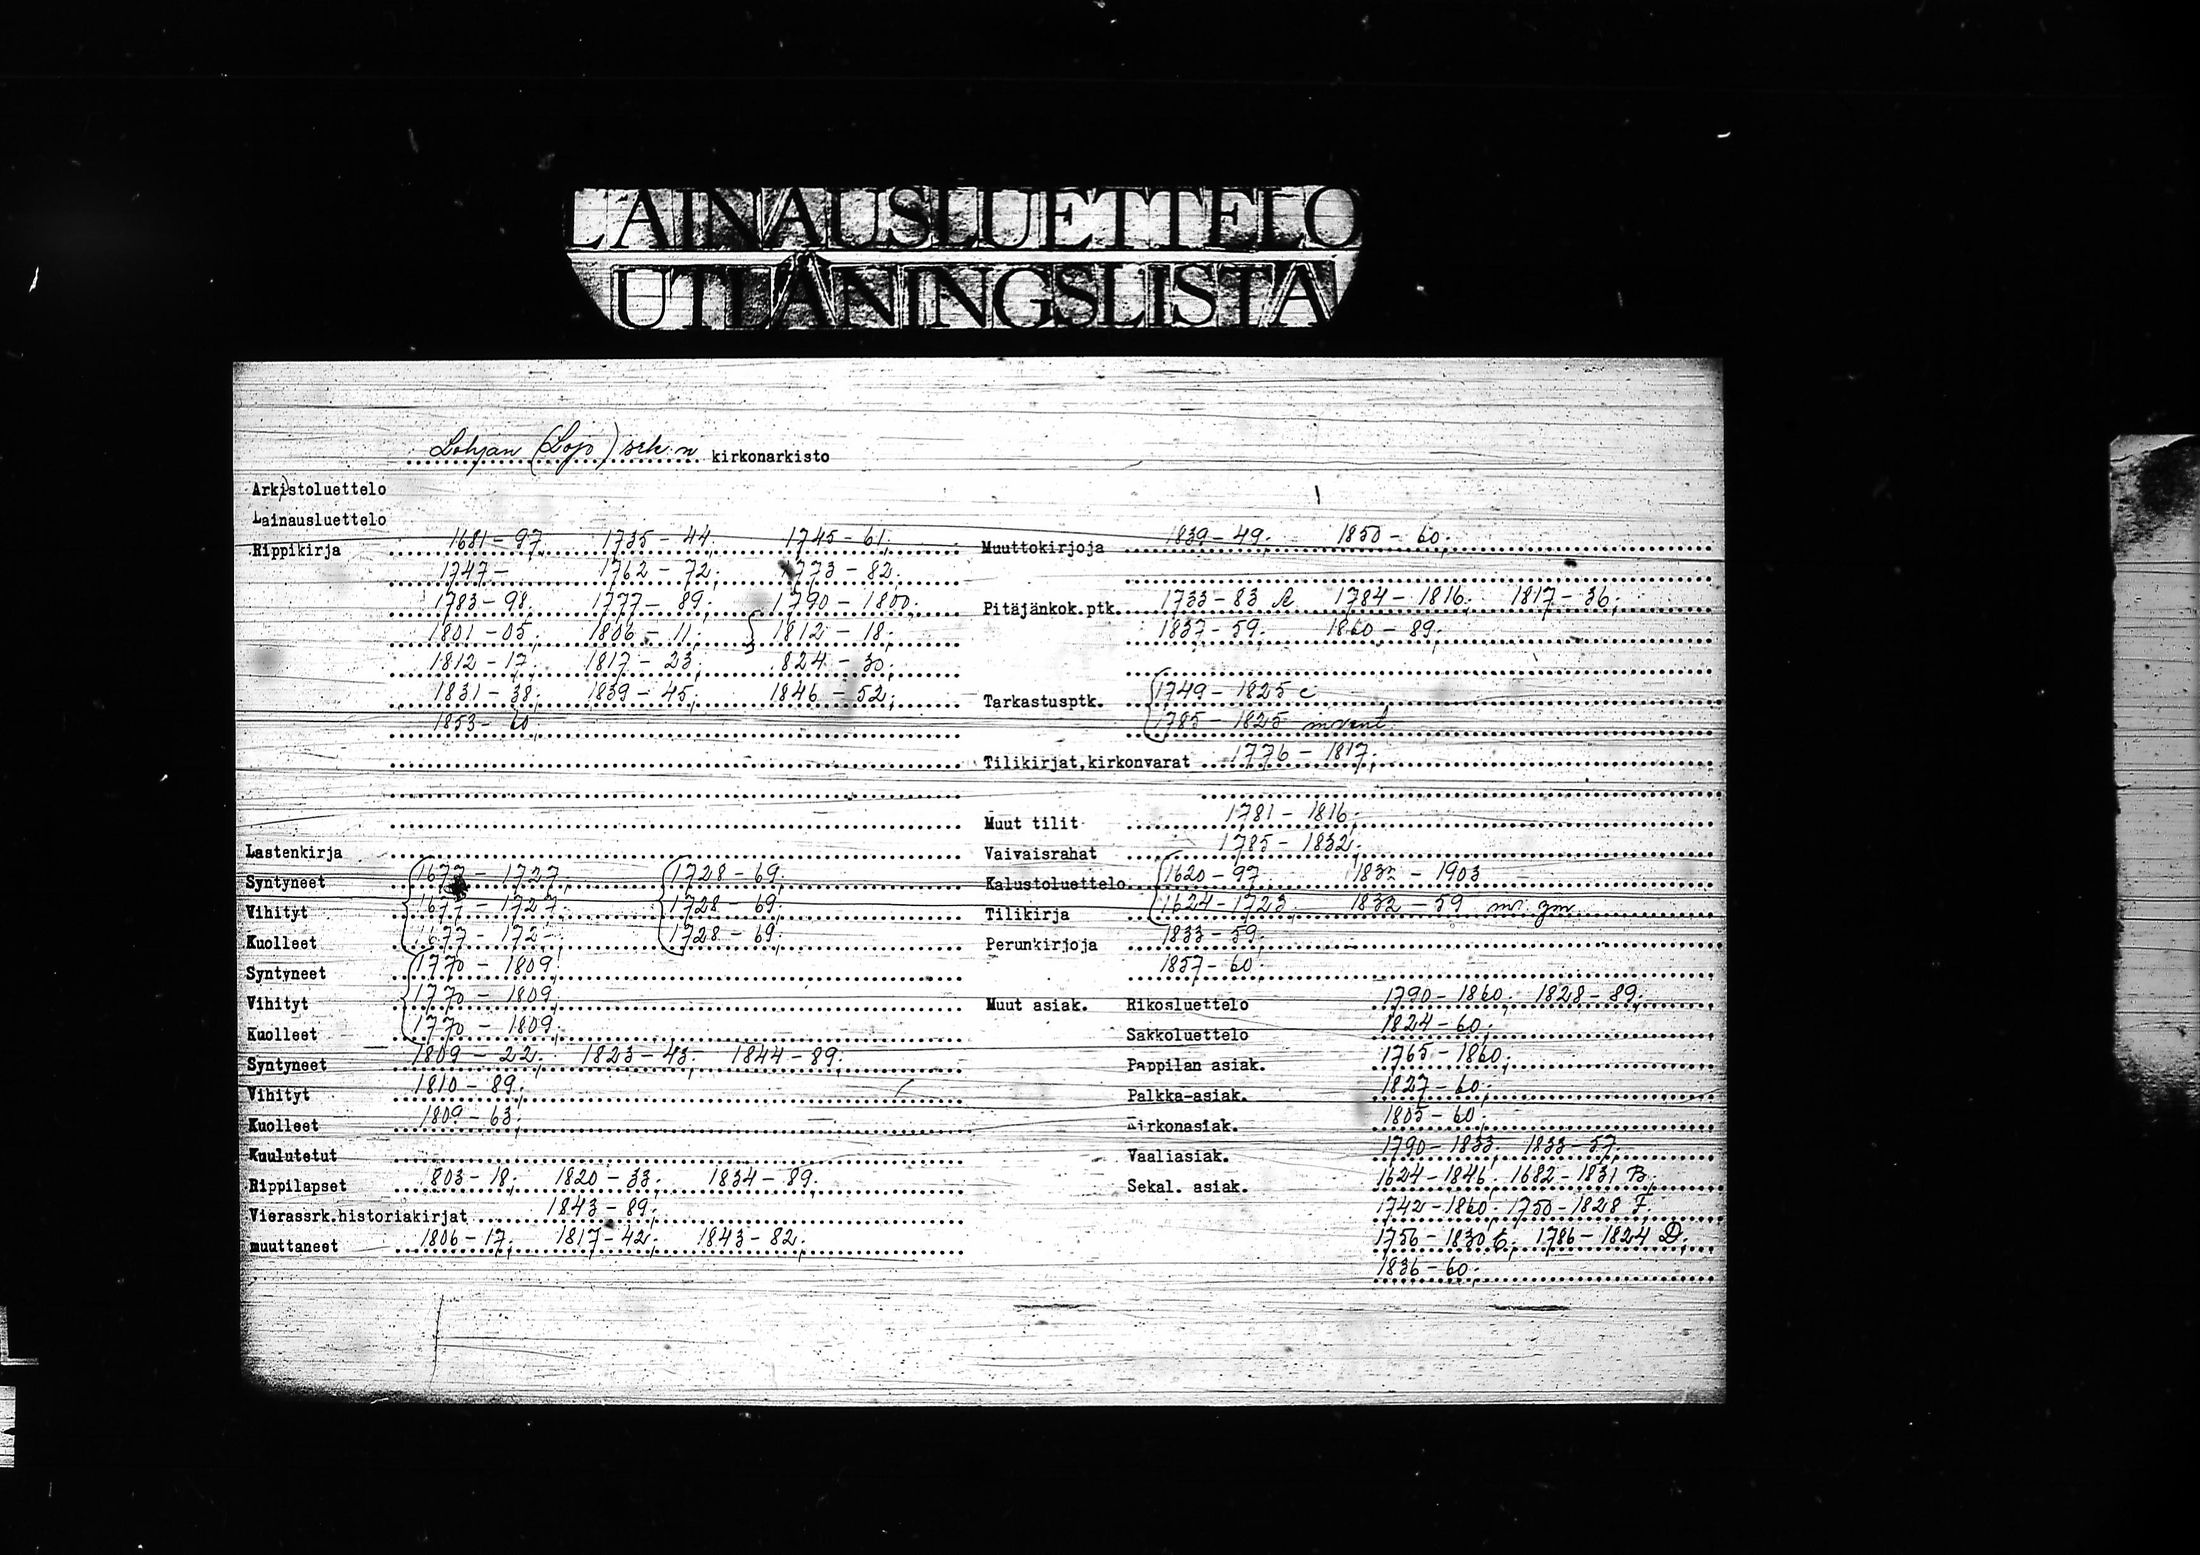 LAINAUSLUETTELO
UTLÅNINGSLISTA
Lohjan (Lojo) srk:n kirkonarkisto
Arkistoluettelo
Lainausluettelo
Rippikirja 1681-97; 1735-44; 1745-61;
1747- 1762-72; 1773-82.
1783-98; 1777-89; 1790-1800;
1801-05; 1806-11; 1812-18;
1812-17; 1817-23; 824-30;
1831-38; 1839-45; 1846-52;
1853-60;
Lastenkirja
Syntyneet 1677-1727; 1728-69;
Vihityt 1677-1727; 1728-69;
Kuolleet 1677-172 1728-69;
Syntyneet 1770-1809;
Vihityt 1770-1809;
Kuolleet 1770-1809;
Syntyneet 1809-22; 1823-43; 1844-89;
Vihityt 1810-89;
Kuolleet 1809-63;
Kuulutetut
Rippilapset 803-18; 1820-33; 1834-89;
Vierassrk.historiakirjat 1843-89;
muuttaneet 1806-17; 1817-42; 1843-82;
Muuttokirjoja 1839-49; 1850-60;
Pitäjänkok.ptk. 1733-83 A 1784-1816; 1817-36;
1837-59; 1860-89;
Tarkastusptk. 1749-1825 c
1785-1825 invent.
Tilikirjat,kirkonvarat 1776-1817;
Muut tilit 1781-1816;
Vaivaisrahat 1785-1832;
Kalustoluettelo 1620-97; 1832-1903
Tilikirja 1624-1723; 1832-59
Perunkirjoja 1833-59;
1857-60;
Muut asiak. Rikosluettelo 1790-1860; 1828-89;
Sakkoluettelo 1824-60;
Pappilan asiak. 1765-1860;
Palkka-asiak. 1827-60;
Kirkonasiak. 1805-60;
Vaaliasiak. 1790-1833; 1833-57;
Sekal. asiak. 1624-1846; 1682-1831 B;
1742-1860; 1750-1828 F;
1756-1830 E; 1786-1824 D;
1836-60;